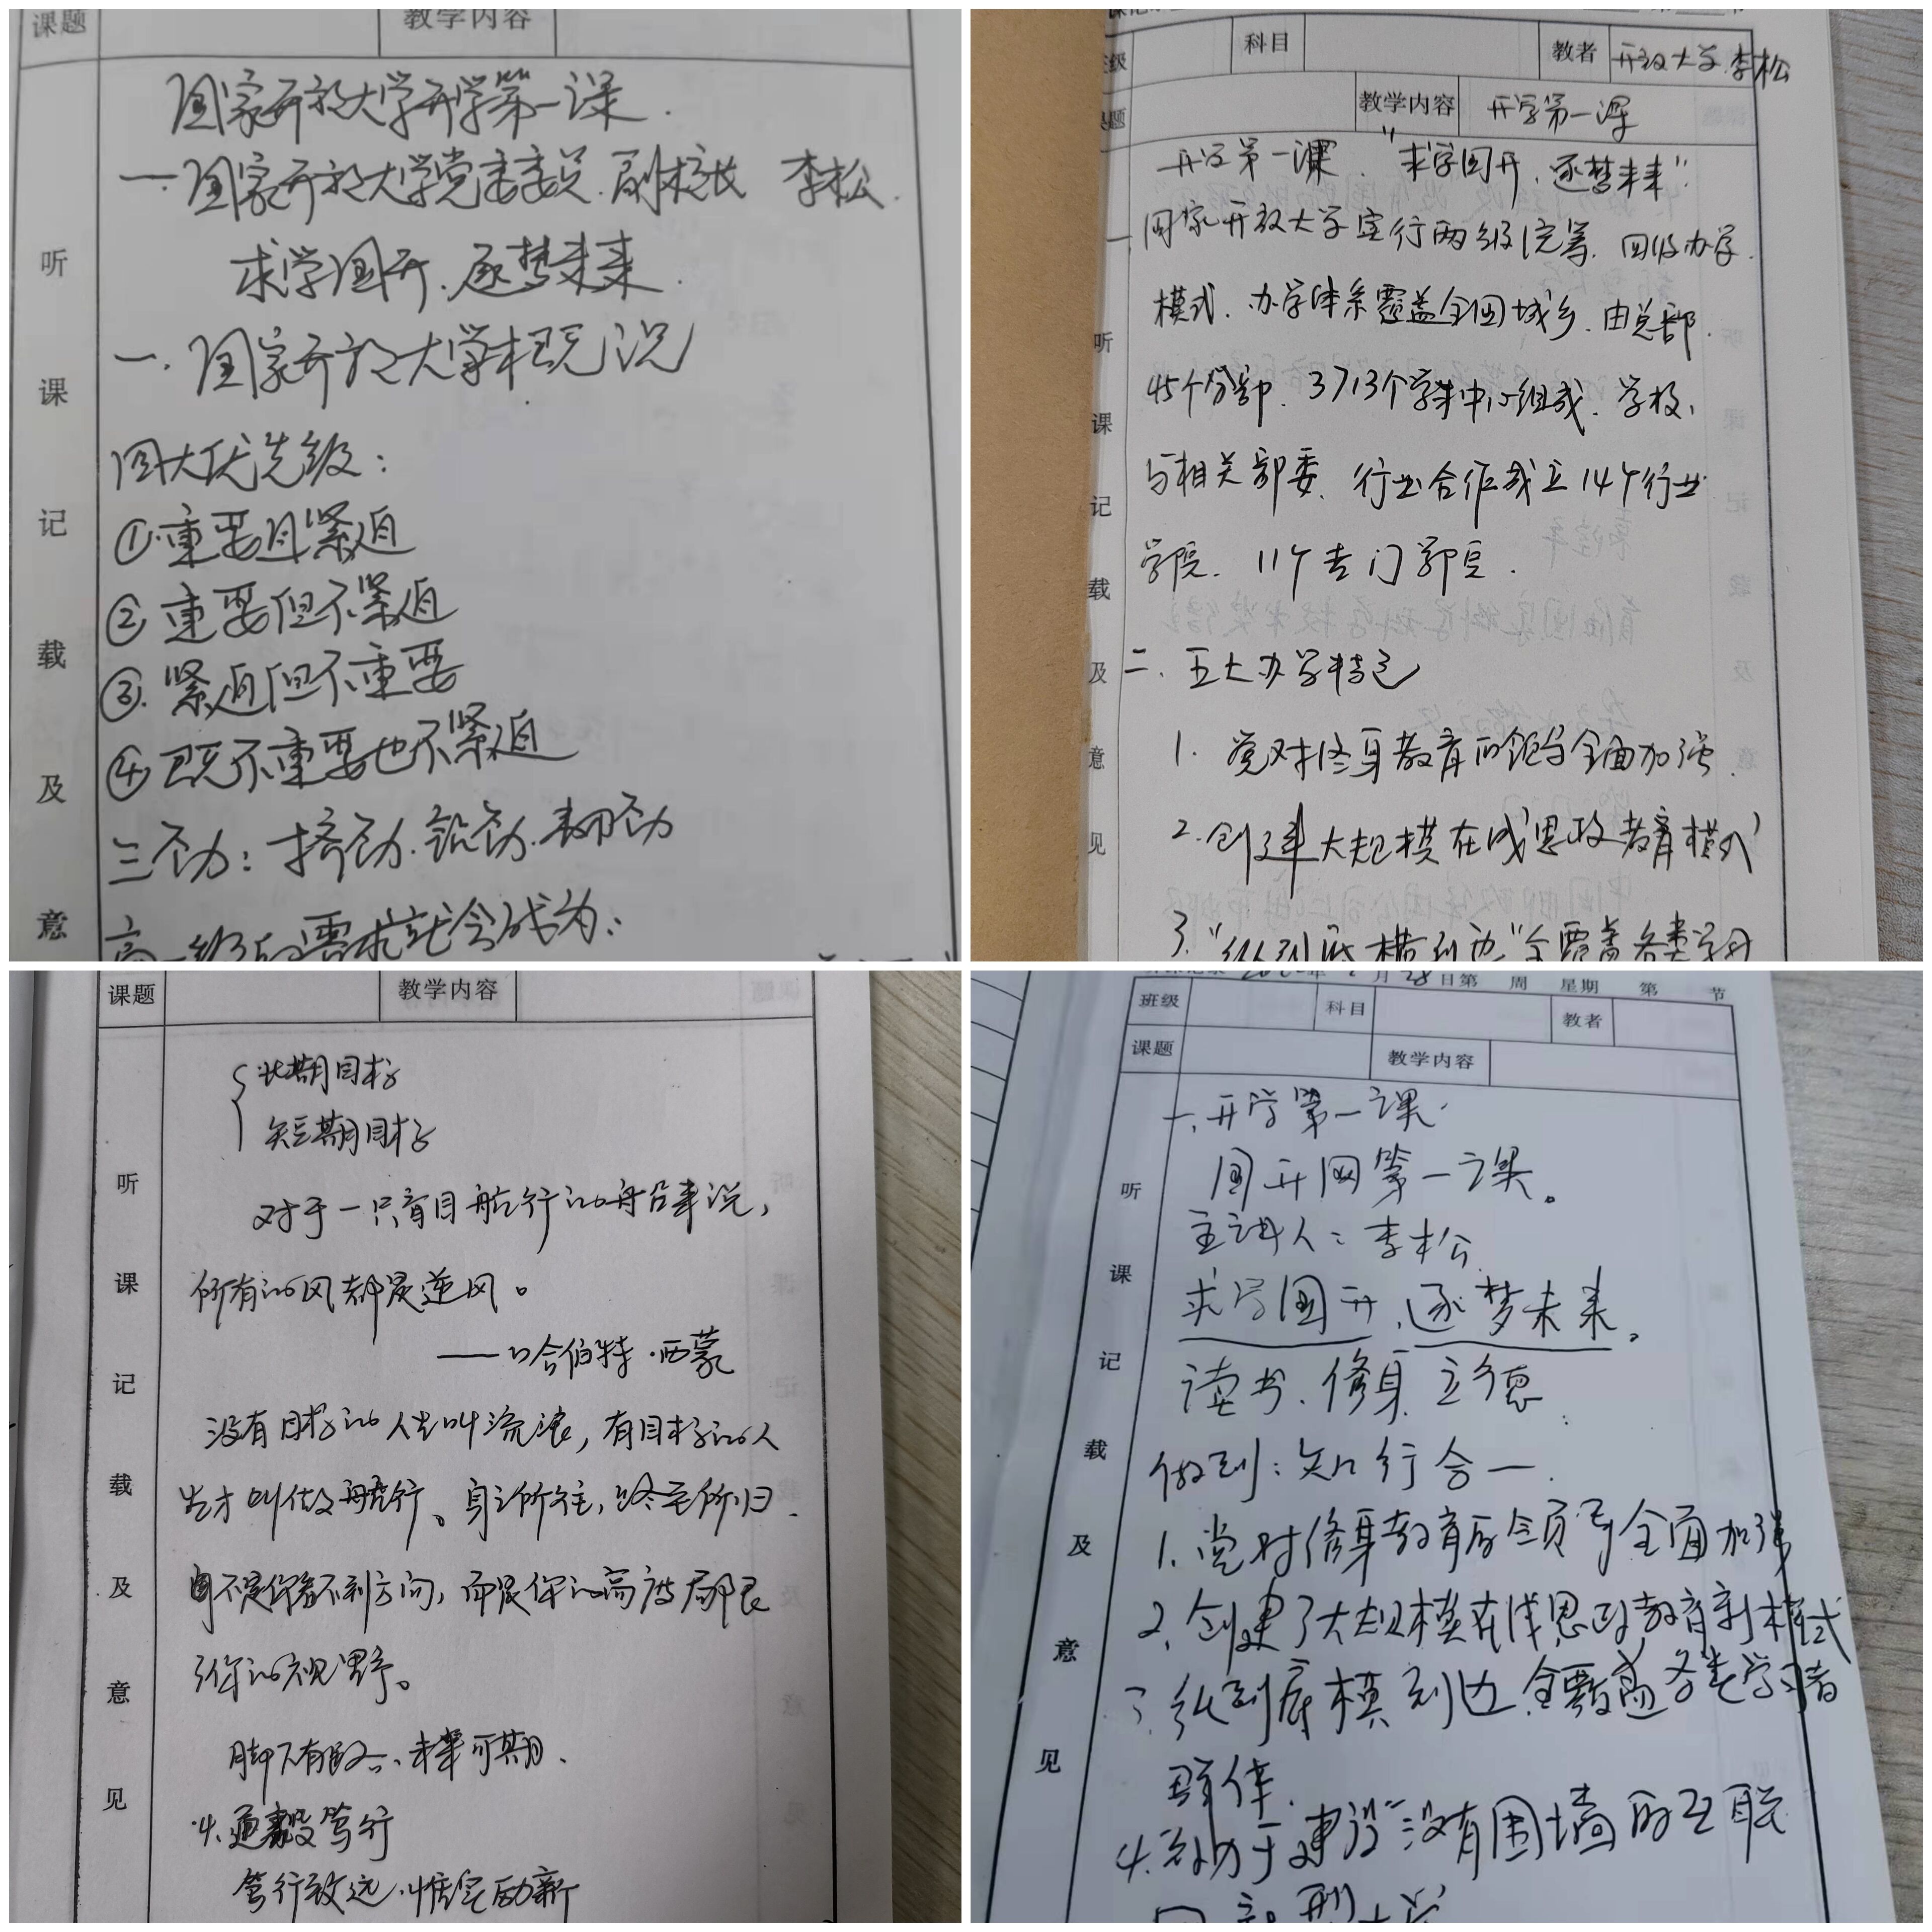 课题 教学内容
国家开放大学开学第一课.
一.国家开放大学党委委员.副校长 李松.
求学国开.逐梦未来.
一.国家开放大学概况
四大优先级:
①.重要且紧迫
②重要但不紧迫
③.紧迫但不重要
④既不重要也不紧迫
三劲:挤劲.钻劲.韧劲
高一级的需求就会成为:
听课记载及意
科目 教者 开放大学 李松
教学内容 开学第一课
开学第一课."求学国开.逐梦未来"
一.国家开放大学实行两级统筹.四级办学.
模式.办学体系覆盖全国城乡.由总部.
45个分部.3713个学习中心组成.学校.
与相关部委.行业合作成立14个行业
学院.11个专门学院.
二.五大办学特色
1.党对终身教育的领导全面加强.
2.创建大规模在线思政教育模式
3."纵到底横到边"全覆盖各类学习
听课记载及意见
课题 教学内容
长期目标
短期目标
对于一只盲目航行的船只来说,
所有的风都是逆风。
——哈伯特·西蒙
没有目标的人生叫流浪,有目标的人
生才叫做航行。身之所往,终至所归.
不是你看不到方向,而是你的高度局限
了你的视野。
脚下有路.未来可期.
4.通毅笃行
笃行致远.惟实励新
听课记载及意见
月28日第 周 星期 第 节
班级 科目 教者
课题 教学内容
一.开学第一课.
国开网第一课。
主讲人:李松
求学国开.逐梦未来。
读书.修身.立德.
做到:知行合一.
1.党对终身教育的领导全面加强
2.创建了大规模在线思政教育新模式
3.纵到底横到边全覆盖各类学习者
群体.
4.致力于建设"没有围墙的互联
听课记载及意见